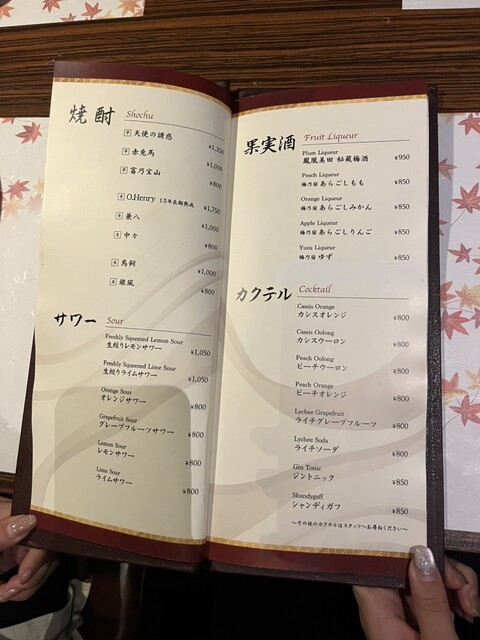 焼酎 Shochu
芋 天使の誘惑
¥1,350
芋 赤兎馬
¥1,000
芋 富乃宝山
¥800
麦 O.Henry 15年長期熟成
¥1,750
麦 兼八
¥1,000
麦 中々
¥800
米 鳥飼
¥1,000
米 銀風
¥800
サワー Sour
Freshly Squeezed Lemon Sour
生絞りレモンサワー ¥1,050
Freshly Squeezed Lime Sour
生絞りライムサワー ¥1,050
Orange Sour
オレンジサワー ¥800
Grapefruit Sour
グレープフルーツサワー ¥800
Lemon Sour
レモンサワー ¥800
Lime Sour
ライムサワー ¥800
果実酒 Fruit Liqueur
Plum Liqueur
鳳凰美田 秘蔵梅酒 ¥950
Peach Liqueur
梅乃宿 あらごしもも ¥850
Orange Liqueur
梅乃宿 あらごしみかん ¥850
Apple Liqueur
梅乃宿 あらごしりんご ¥850
Yuzu Liqueur
梅乃宿 ゆず ¥850
カクテル Cocktail
Cassis Orange
カシスオレンジ ¥800
Cassis Oolong
カシスウーロン ¥800
Peach Oolong
ピーチウーロン ¥800
Peach Orange
ピーチオレンジ ¥800
Lychee Grapefruit
ライチグレープフルーツ ¥800
Lychee Soda
ライチソーダ ¥800
Gin Tonic
ジントニック ¥850
Shandygaff
シャンディガフ ¥850
〜その他のカクテルはスタッフへお尋ねください〜